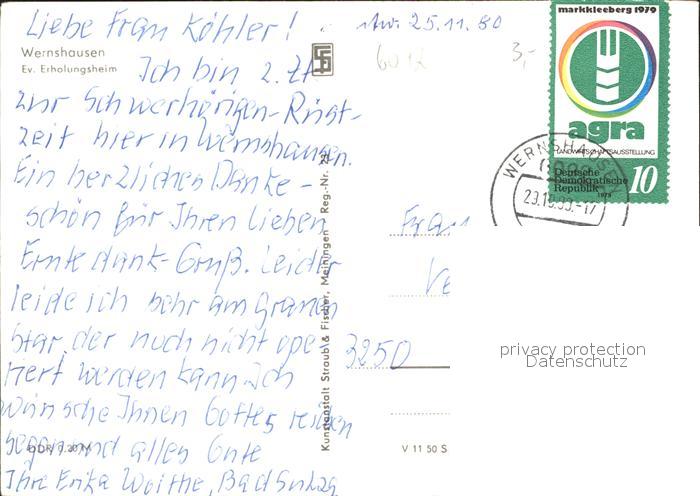 Liebe Frau Köhler!
Antw. 25.11.80
Wernshausen
Ev. Erholungsheim
6012
3,-
Ich bin z. Zt
zur Schwerhörigen-Rüst-
zeit hier in Wernshausen.
Ein herzliches Danke-
schön für Ihren lieben
Erntedank-Gruß. Leider
leide ich sehr am grauen
Star, der noch nicht ope-
riert werden kann. Ich
wünsche Ihnen Gottes reichen
Segen und alles Gute
Ihre Erika Woithe, Bad Sulza
DDR 0.20 M
Kunstanstalt Straub & Fischer, Meiningen · Reg.-Nr.
V 11 50 S
markkleeberg 1979
agra
LANDWIRTSCHAFTSAUSSTELLUNG
Deutsche
Demokratische
Republik
1979
10
WERNSHAUSEN
Frau
3250
privacy protection
Datenschutz